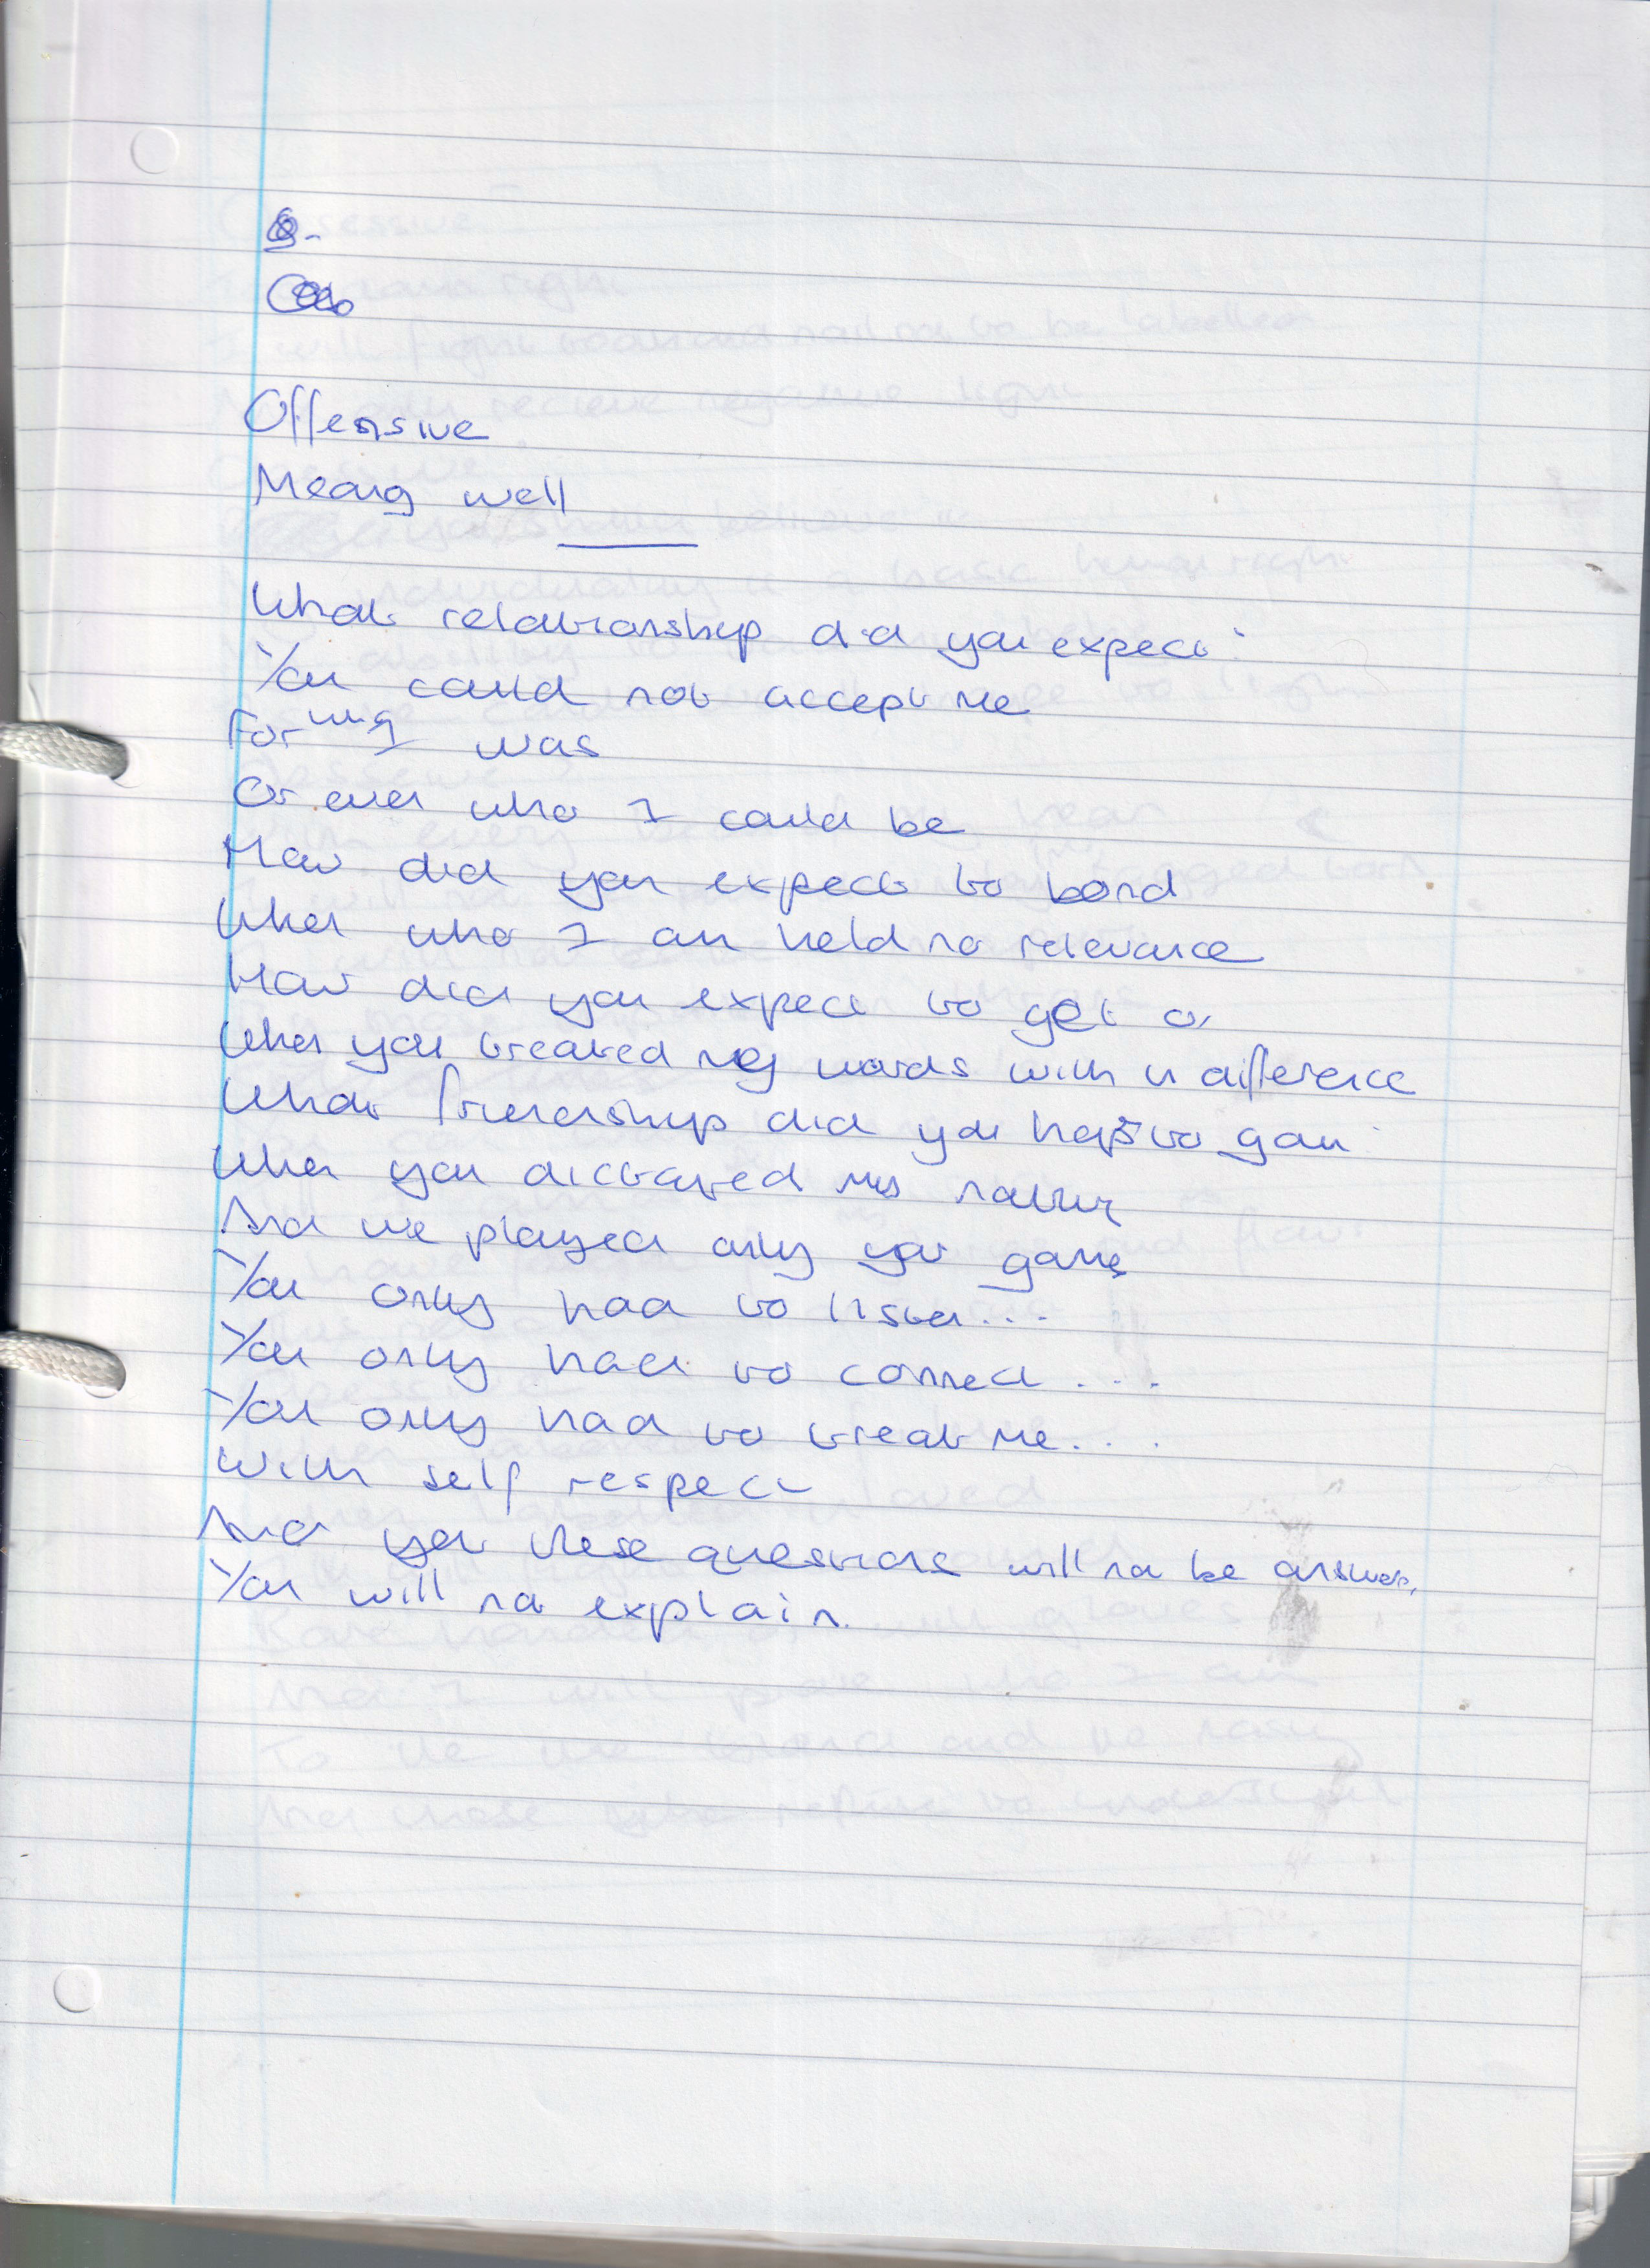 Offensive
Meang well
What relationship did you expect?
You could not accept me
For who I was
Or even who I could be
How did you expect to bond
When who I am held no relevance
How did you expect to get on
When you treated my words with indifference
What friendship did you hope to gain
When you dictated my nature
And we played only your game
You only had to listen...
You only had to connect...
You only had to treat me....
With self respect
And yet these questions will not be answer,
You will not explain.